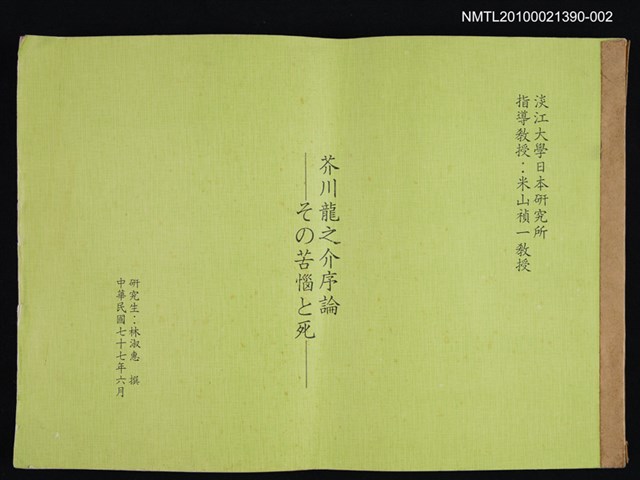 NMTL20100021390-002
淡江大學日本研究所
指導教授：米山禎一教授
芥川龍之介序論
——その苦惱と死——
研究生：林淑惠 撰
中華民國七十七年六月